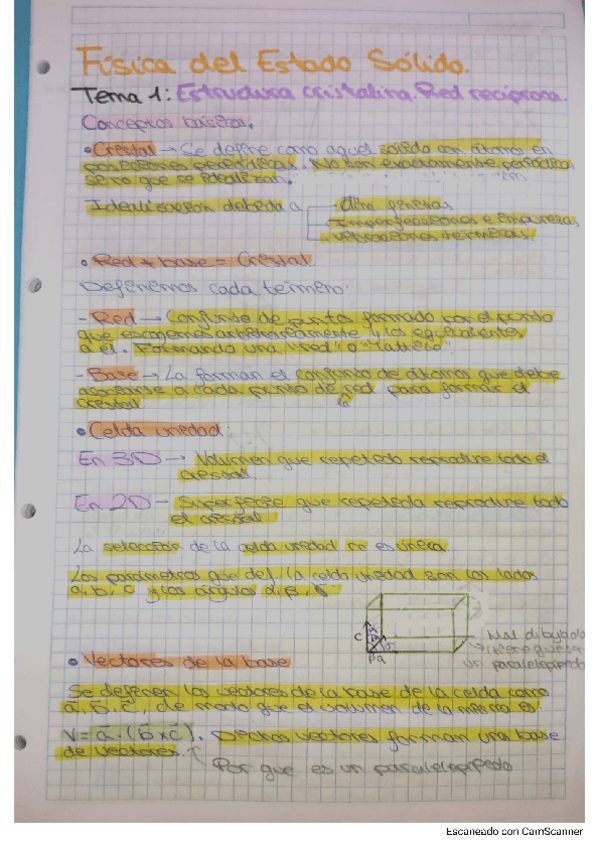 Física del Estado Sólido.
Tema 1: Estructura cristalina. Red recíproca.
Conceptos básicos.
• Cristal → Se define como aquel sólido con átomos en
posiciones periódicas. No son exactamente periódicos
sino que se idealizan.
Idealización debida a
Dim. género
Imperfecciones e impurezas
Vibraciones térmicas.
• Red + base = Cristal
Definimos cada término.
- Red → Conjunto de puntos formado por el punto
que escogemos arbitrariamente y los equivalentes
a él. Formando una "red" o "lattice".
- Base → La forman el conjunto de átomos que debe
asociarse a cada punto de red para formar el
cristal
• Celda unidad:
En 3D → Volumen que repetido reproduce todo el
cristal.
En 2D - Superficie que repetida reproduce todo
el cristal
La selección de la celda unidad no es única
Los parámetros que def. la celda unidad son los lados
a, b, c y los ángulos α, β, γ
c
a
Mal dibujado
tiene que ser
un paralelepípedo
• Vectores de la base
Se definen los vectores de la base de la celda como
a, b, c, de modo que el volumen de la misma es
V = a · (b x c). Dichos vectores forman una base
de vectores.
Por que es un paralelepípedo
Escaneado con CamScanner